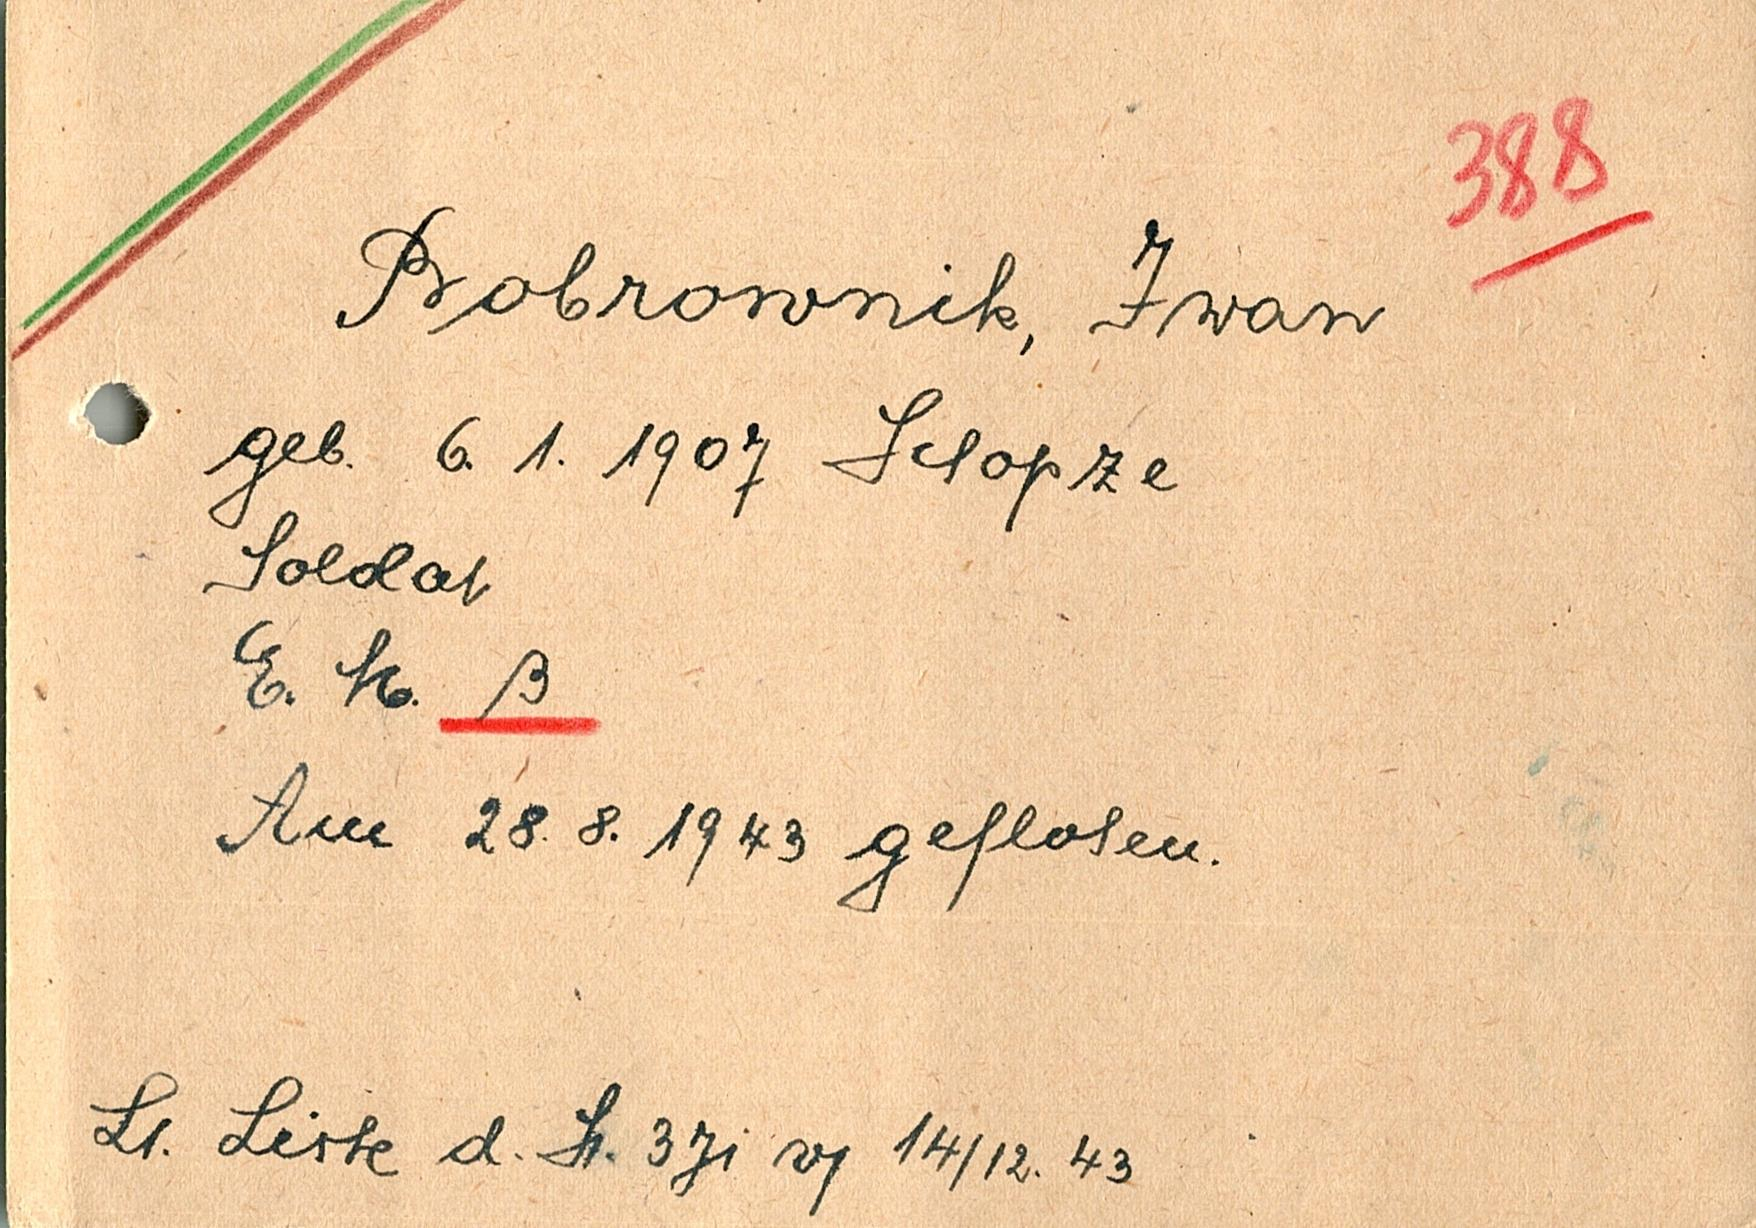 388
Bobrownik, Iwan
geb. 6. 1. 1907 Schopze
Soldat
E. M. B
Am 28. 8. 1943 geflohen.
Lt. Liste d. St. v. 14/12. 43